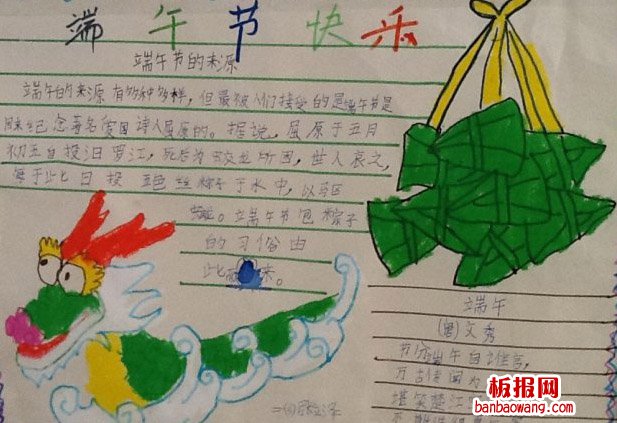 端午节快乐
端午节的来源
端午的来源有多种多样，但最被人们接受的是端午节是
用来纪念著名爱国诗人屈原的。据说，屈原于五月
初五自投汨罗江，死后为蛟龙所困，世人哀之，
每于此日投五色丝粽子于水中，以驱
蛟龙。端午节包粽子
的习俗由
此而来。
端午
(唐)文秀
节分端午自谁言，
万古传闻为
堪笑楚江
板报网
banbaowang.com